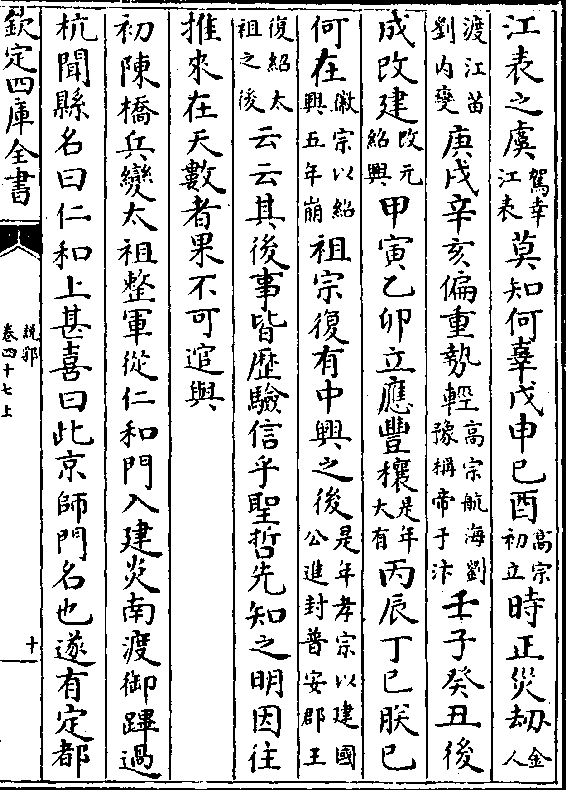 江表之虞駕幸江表莫知何辜戊申已酉高宗初立時正災劫金人
渡江苗劉内變庚戌辛亥偏重勢輕高宗航海劉豫稱帝于汴壬子癸丑後
成改建改元紹興甲寅乙卯立應豐穰是年大有丙辰丁巳朕已
何在徽宗以紹興五年崩祖宗復有中興之後是年孝宗以建國公進封普安郡王
復紹太祖之後云云其後事皆歴驗信乎聖哲先知之明因往
推來在天數者果不可逭與
初陳橋兵變太祖整軍從仁和門入建炎南渡御蹕過
杭聞縣名曰仁和上甚喜曰此京師門名也遂有定都
欽定四庫全書
説郛
卷四十七上
十